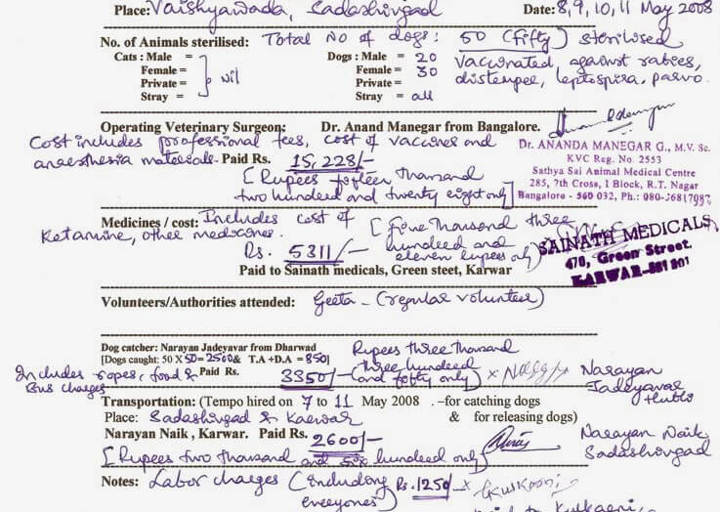 Place: Vaishyawada, Sadashivgad Date: 8, 9, 10, 11 May 2008
No. of Animals sterilised: Total No of dogs: 50 (fifty) sterilised
Cats : Male = Dogs : Male = 20 Vaccinated, against rabies,
Female = Female = 30 distemper, leptospira, parvo.
Private = Nil Private =
Stray = Stray = all
Operating Veterinary Surgeon: Dr. Anand Manegar from Bangalore.
Cost includes professional fees, cost of vaccines and
anaesthesia materials. Paid Rs. 15,228/-
[Rupees fifteen thousand
two hundred and twenty eight only]
Dr. ANANDA MANEGAR G., M.V. Sc.
KVC Reg. No. 2553
Sathya Sai Animal Medical Centre
285, 7th Cross, 1 Block, R.T. Nagar
Bangalore - 560 032, Ph.: 080-36817987
Medicines / cost: Includes cost of [five thousand three
Ketamine, other medicines. hundred and
Rs. 5311/- eleven rupees only)
SAINATH MEDICALS
470, Green Street.
KARWAR-581 301
Paid to Sainath medicals, Green steet, Karwar
Volunteers/Authorities attended: Geeta - (regular volunteer)
Dog catcher: Narayan Jadeyavar from Dharwad Rupees three thousand
[Dogs caught: 50 X 50=2500 & T.A +D.A = 850] three hundred
Includes ropes, food & Paid Rs. 3350/- (and fifty only) x Narayan
Bus charges Jadeyavar
Hubli
Transportation: (Tempo hired on 7 to 11 May 2008 .–for catching dogs
Place: Sadashivgad & Karwar & for releasing dogs)
Narayan Naik , Karwar. Paid Rs. 2600/- Narayan Naik
[Rupees two thousand and six hundred only] Sadashivgad
Notes: Labor charges (including Rs. 1250/- x
everyones)
Kulkarni,